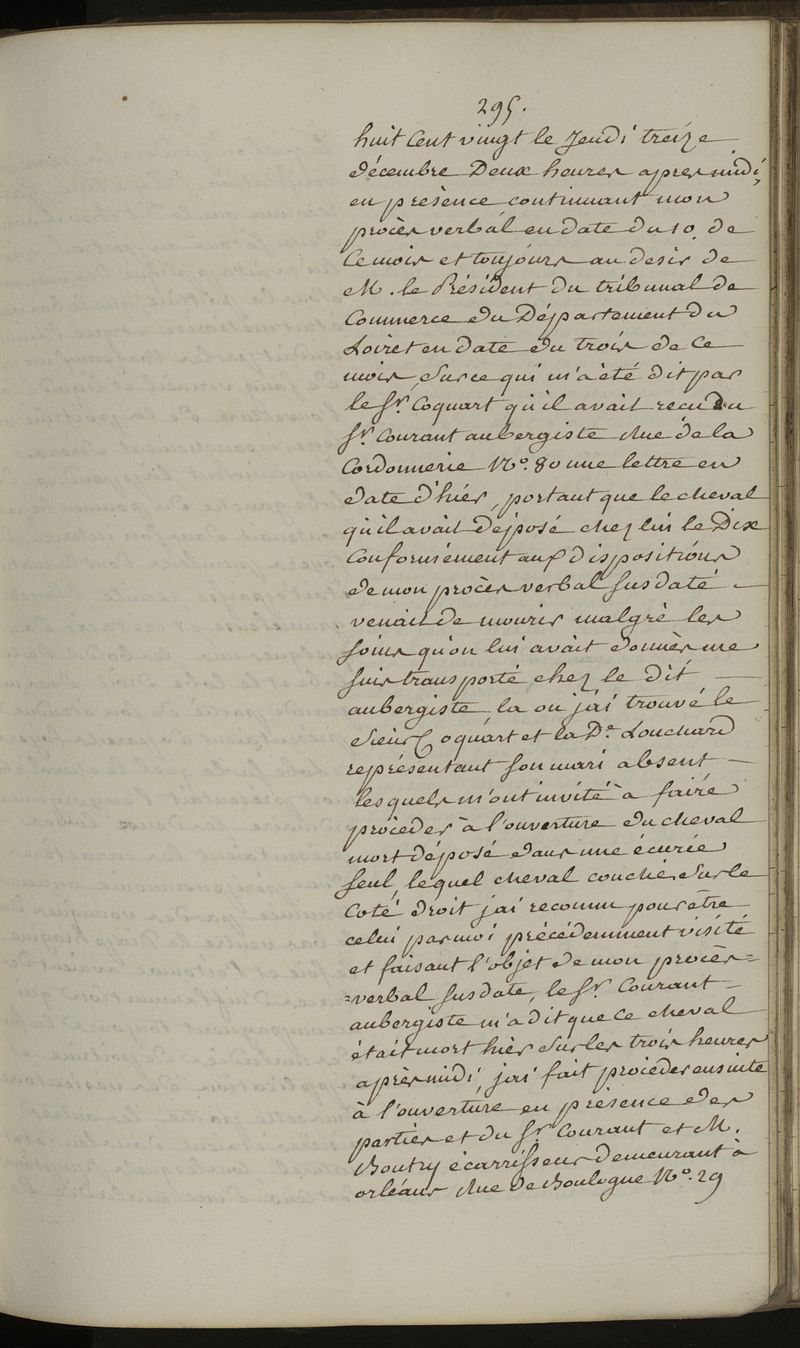 295.
huit Cent vingt le Jeudi treize
décembre Deux heures apres midi,
en présence continuant mon
procès verbal en date du 10 de
Ce mois et toujours au desir de
M. le Président du tribunal de
Commerce du Département du
Loiret en date du trois de Ce
mois, Sur ce qui m'a été dit par
le Sr. Coquart qu'il avait recu du
Sr. Courant aubergiste Rue de la
Cordonnerie No. 80 une lettre en
date d'hier, portant que le cheval
qu'il avait déposé chez lui le Dix
Conformément aux dispositions
de mon procès verbal Susdaté —
venait de mourir malgré les
Soins qu'on lui avait donnés me
Suis transporté chez le dit —
aubergiste la ou j'ai trouvé le
Sieur Coquart et la De. Louchard
représentant Son mari absent —
lesquels m'ont invité à faire
procéder à l'ouverture du cheval
mort déposé dans une écurie
Seul, lequel cheval couché Sur le
Coté droit j'ai reconnu pour être
celui par moi précédemment visité
et faisant l'objet de mon procès=
=verbal Susdaté, le Sr. Courant —
aubergiste m'a dit que Ce cheval
était mort hier Sur les trois heures
après midi, j'ai fait procéder ensuite
à l'ouverture en présence des
parties et du Sr Courant et M.
Boutry écarrisseur demeurant à
orléans Rue de Boulogne No. 29